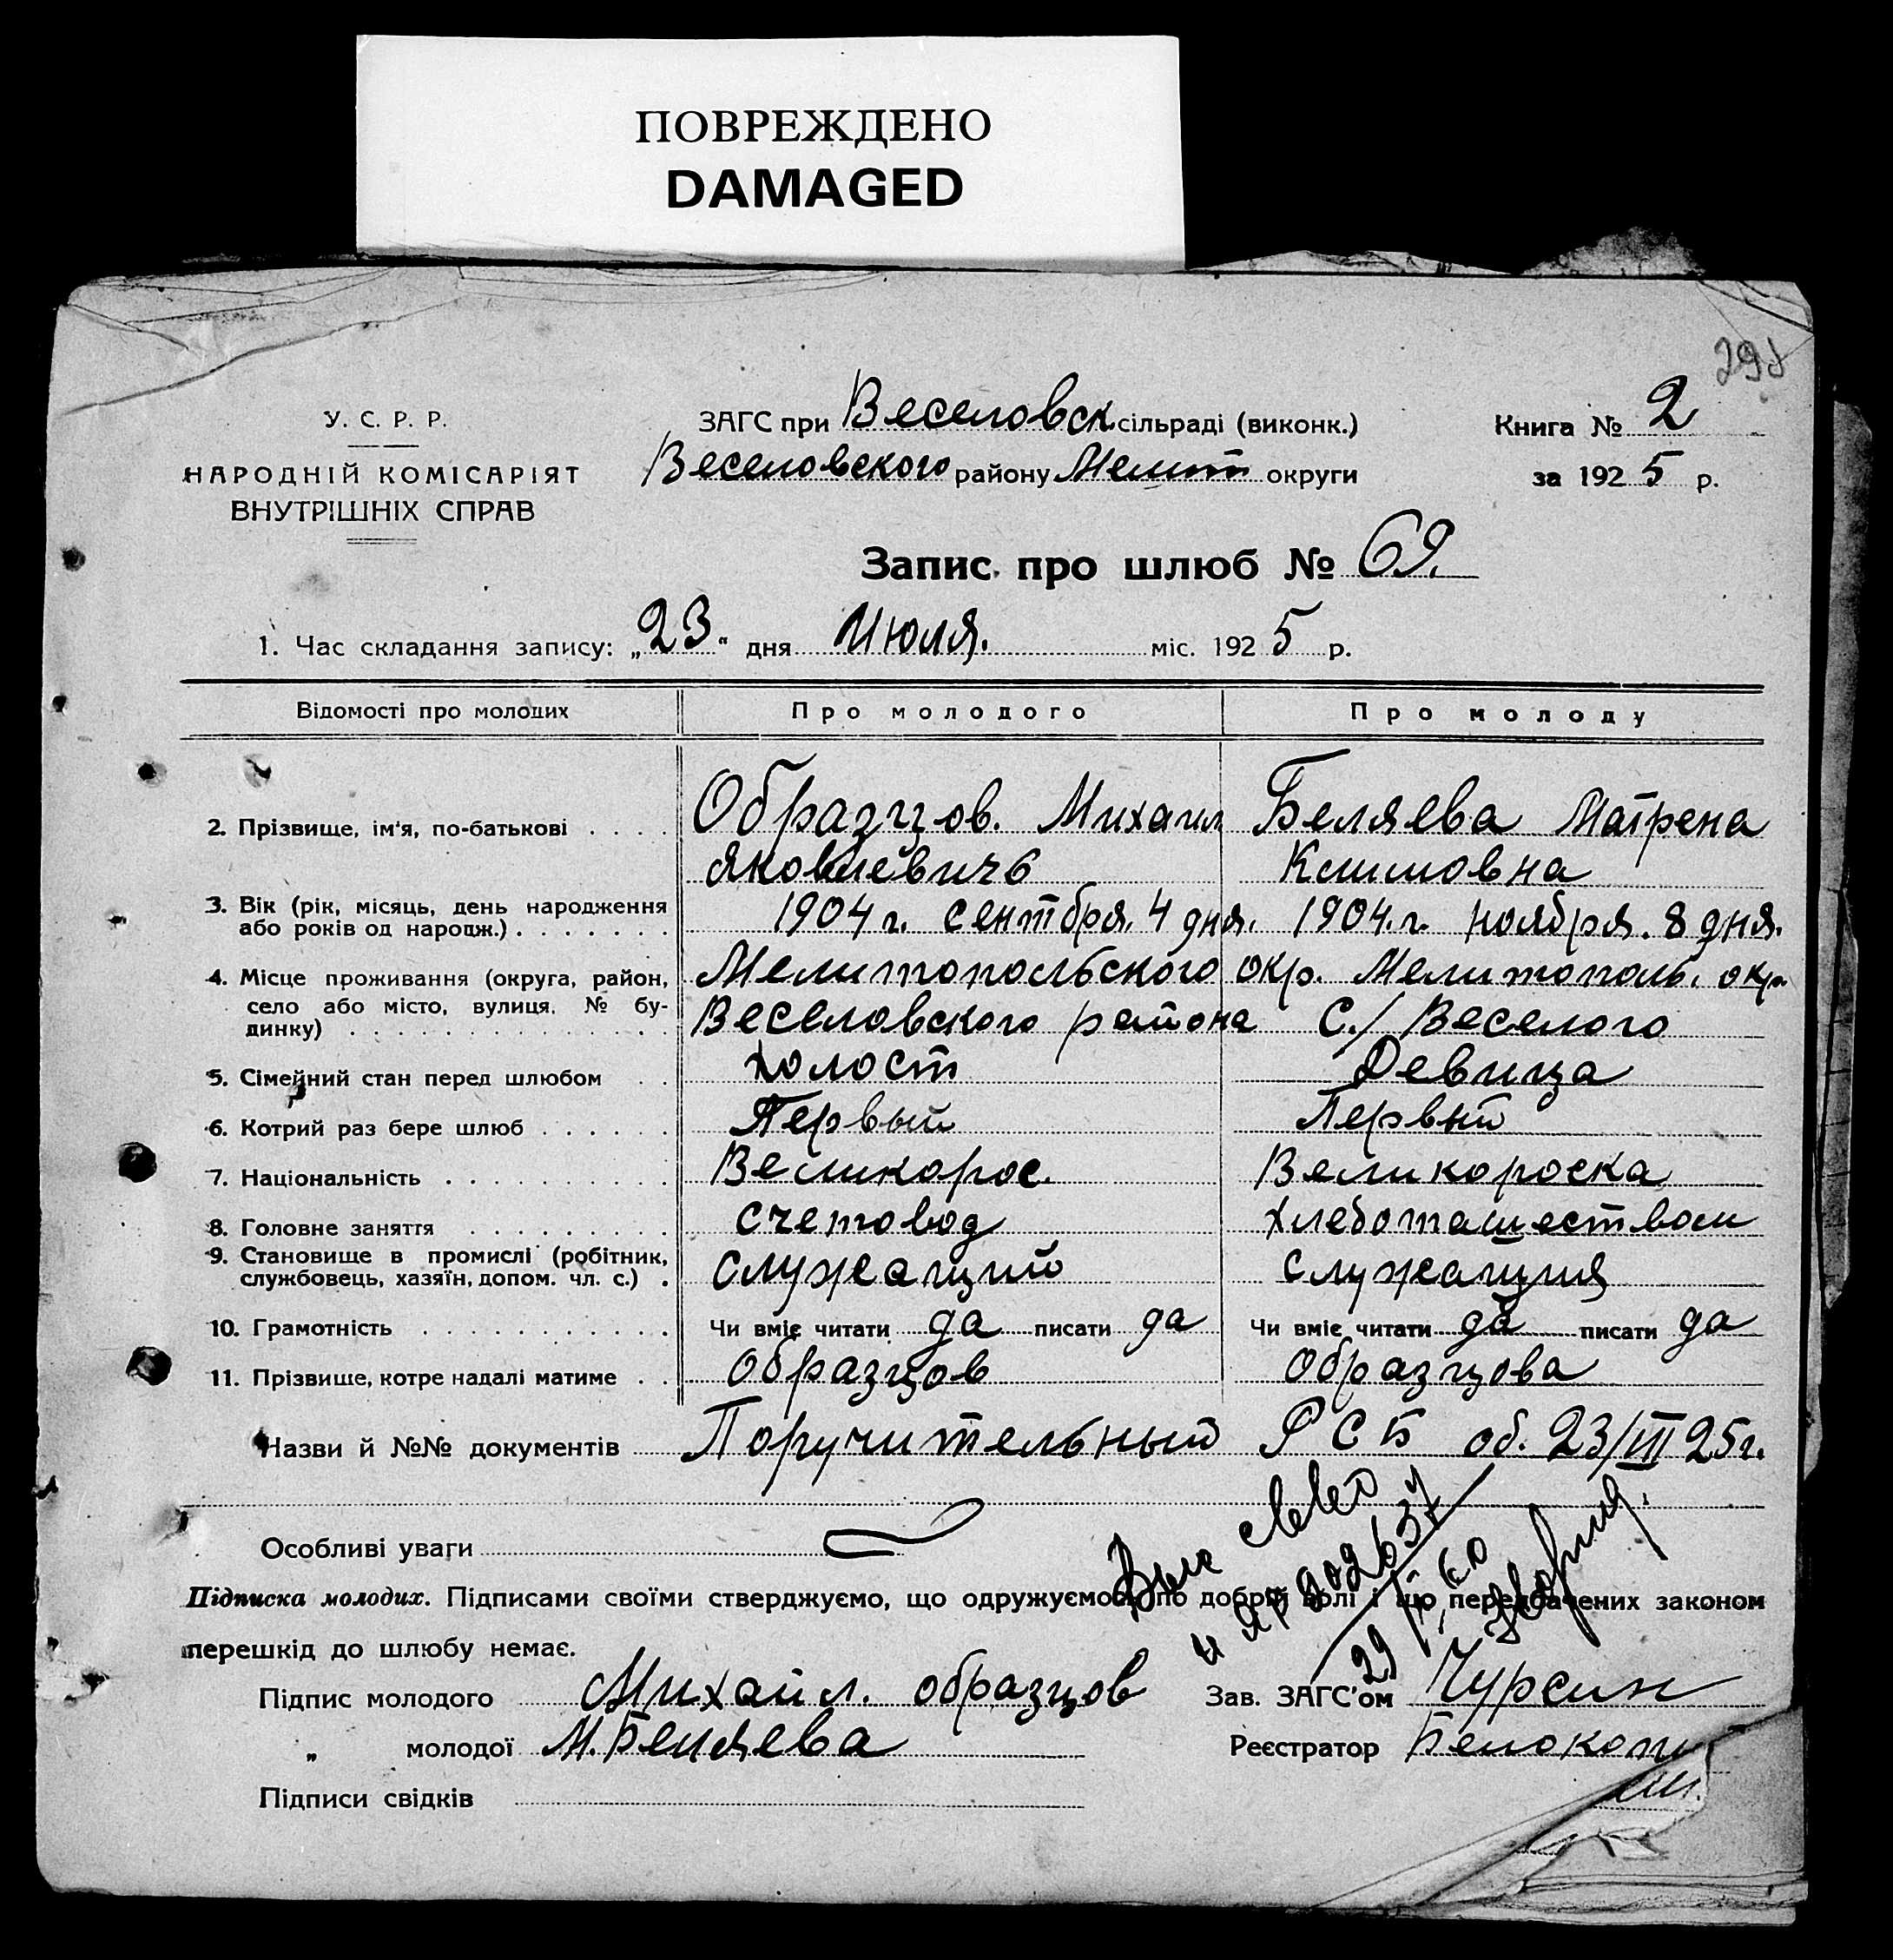 ПОВРЕЖДЕНО
DAMAGED
293
У. С. Р. Р.
НАРОДНІЙ КОМІСАРІЯТ
ВНУТРІШНІХ СПРАВ
ЗАГС при Веселовск. сільраді (виконк.)
Веселовского району Мелит округи
Книга № 2
за 1925 р.
Запис про шлюб № 69.
1. Час складання запису: „23" дня Июля. міс. 1925 р.
Відомості про молодих Про молодого Про молоду
2. Прізвище, ім'я, по-батькові . . . . Образцов. Михаил Беляева Матрена
Яковлевичь Климовна
3. Вік (рік, місяць, день народження
або років од народж.) . . . . . . . 1904 г. сентября. 4 дня. 1904. г. ноября. 8 дня.
4. Місце проживання (округа, район, Мелитопольского окр. Мелитополь. окр.
село або місто, вулиця, № бу-
динку) . . . . . . . . . . . . Веселовского района С./ Веселого
5. Сімейний стан перед шлюбом . . холост Девица
6. Котрий раз бере шлюб . . . . . Первый Первый
7. Національність . . . . . . . . . . Великорос. Великороска
8. Головне заняття . . . . . . . . . счетовод
9. Становище в промислі (робітник,
службовець, хазяїн, допом. чл. с.) . служащий служащия
10. Грамотність . . . . . . . . . . . Чи вміє читати да писати да Чи вміє читати да писати да
11. Прізвище, котре надалі матиме . . Образцов Образцова
Назви й №№ документів Поручительный Р С Б об. 23/VII 25 г.
Особливі уваги
Підписка молодих. Підписами своїми стверджуємо, що одружуємось по добрій волі і що передбачених законом
перешкід до шлюбу немає.
Підпис молодого Михаил. образцов Зав. ЗАГС'ом Чурсин
„ молодої М. Беляева Реєстратор
Підписи свідків